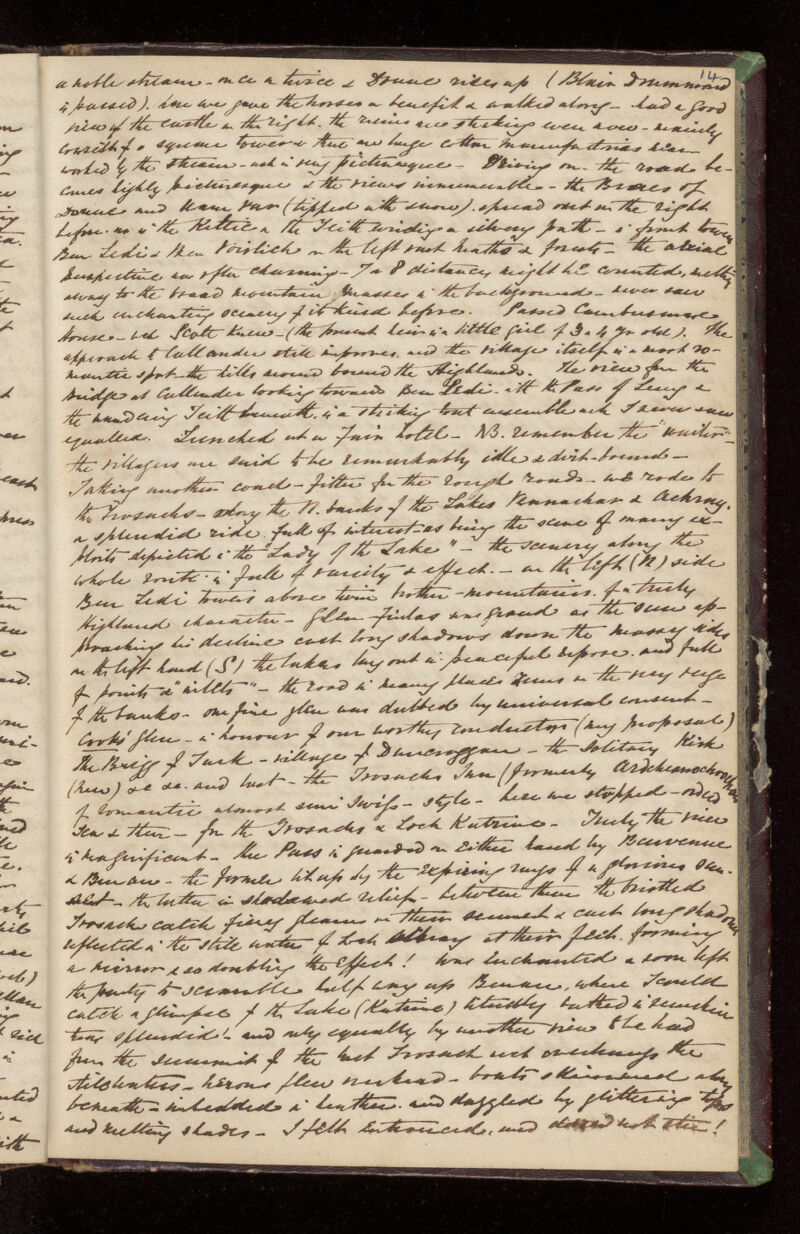 14
a noble stream - once a twice & Doune rises up (Blair Drummond
is passed). here we gave the horses a benefit & walked along - had a good
view of the castle on the right. the ruins are striking even now - mainly
consisting of a square tower & there are large cotton manufactories near
worked by the stream - wch is very picturesque - Driving on - the road be-
comes highly picturesque & the views innumerable - the Braes of
Doune and Uam Var (tipped with snow) spread out on the right
before us is the Keltie & the Teith winding a silvery path - in front tower
Ben Ledi & Ben Voirlich on the left vast heaths & forests - the aerial
perspective was often charming - 7 or 8 distances might be counted, melting
away to the broad mountain masses in the background - never saw
such enchanting scenery of its kind before. Passed Cambusmore
House - wch Scott knew - (the present heir is a little girl of 3 or 4 yrs old). The
approach to Callander still improves, and the village itself is a most ro-
mantic spot - the hills around bound the Highlands. The view from the
bridge at Callender looking towards Ben Ledi - with the Pass of Leny &
the wandering Teith beneath, is a striking tout ensemble wch I never saw
equalled. Lunched at a Fair hotel - NB. remember the "waiter" -
the villagers are said to be remarkably idle & dirt-bound -
Taking another coach - fitter for the rough roads - we rode to
the Trosachs - along the N. banks of the Lakes Vennachar & Achray.
a splendid ride full of interest - as being the scene of many ex-
ploits depicted in the "Lady of the Lake" - the scenery along the
whole route is full of variety & effect. - on the left (N) side
Ben Ledi towers above twin brother - mountains, of a truly
Highland character - Glen Finlas was grand as the sun ap-
proaching his decline cast long shadows down the massy sides
on the left hand (S) the lakes lay out in peaceful repose, and full
of points & "inlets" - the road in many places runs on the very verge
of the banks - one fine glen was dubbed by universal consent -
Cooks' Glen - in honour of our worthy conductors (my proposal)
The Brigg of Turk - village of Duncraggan - the solitary Kirk
(new) &c &c. and last - the Trosachs Inn (formerly
of romantic almost semi Swiss - style - here we stopped - ordered
tea & then - for the Trosachs & Loch Katrine - Truly the view
is magnificent - the Pass is guarded on either hand by Benvenue
& Ben an - the former lit up by the expiring rays of a glorious sun-
set - the latter in shadowed relief - between them the bristled
Trosach catch fiery gleams on their summit & cast long shadows
reflected in the still water of Loch Achray at their feet. forming
a mirror & so doubling the effect! Was enchanted & soon left
the party to scramble half way up Benan, where I could
catch a glimpse of the Lake (Katrine) literally bathed in sunshine
twas splendid! and only equalled by another view I had
from the summit of the last Trosach wch overhangs the
still waters - herons flew overhead - boats skimmed along
beneath - imbedded in heather and dazzled by glittering tips
and melting shades - I felt entranced, and dared not stir!